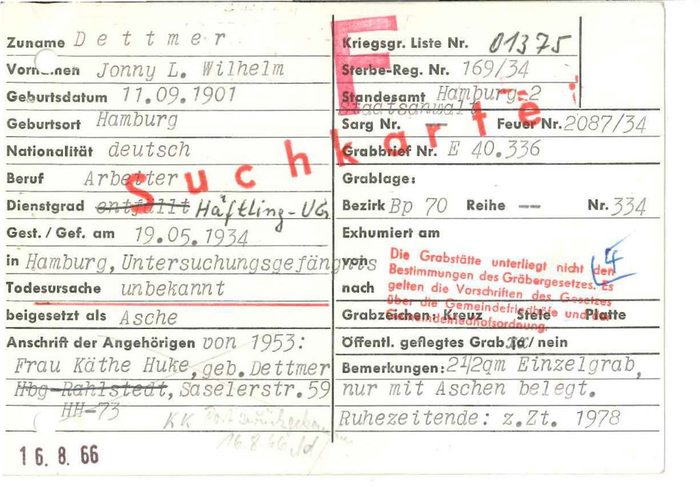 Zuname Dettmer
Vornamen Jonny L. Wilhelm
Geburtsdatum 11.09.1901
Geburtsort Hamburg
Nationalität deutsch
Beruf Arbeiter
Dienstgrad entfällt Häftling-UG
Gest. / Gef. am 19.05.1934
in Hamburg, Untersuchungsgefängnis
Todesursache unbekannt
beigesetzt als Asche
Anschrift der Angehörigen von 1953:
Frau Käthe Huke, geb. Dettmer
Hbg-Rahlstedt, Saselerstr. 59
HH-73
KK
16.8.66
16. 8. 66
F
Suchkartei
Kriegsgr. Liste Nr. 01375
Sterbe-Reg. Nr. 169/34
Standesamt Hamburg-2
Staatsanwalt
Sarg Nr. — Feuer Nr. 2087/34
Grabbrief Nr. E 40.336
Grablage:
Bezirk Bp 70 Reihe — Nr. 334
Exhumiert am
von
nach
Die Grabstätte unterliegt nicht den
Bestimmungen des Gräbergesetzes. Es
gelten die Vorschriften des Gesetzes
über die Gemeindefriedhöfe und der
Gemeindefriedhofsordnung.
4
Grabzeichen: Kreuz Stele Platte
Öffentl. gefelegtes Grab ja / nein
Bemerkungen: 21/2qm Einzelgrab,
nur mit Aschen belegt.
Ruhezeitende: z.Zt. 1978